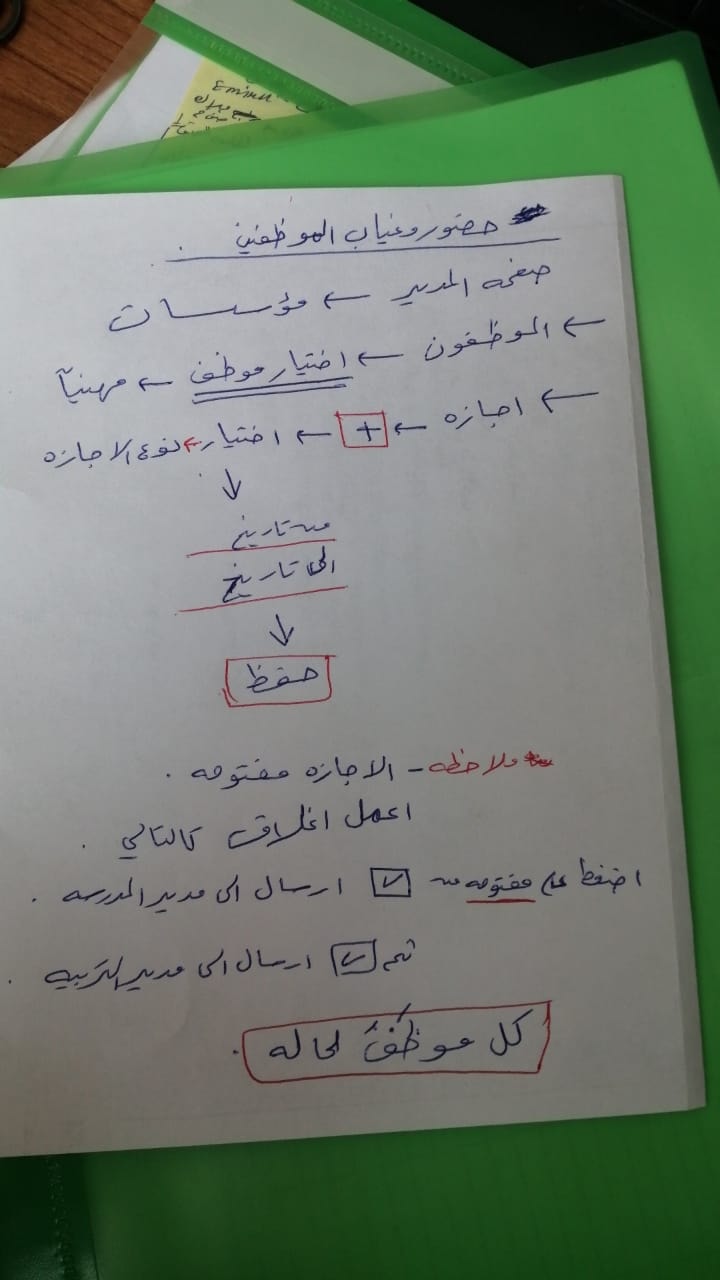 Eminu
حضور وغياب الموظفين .
صفحه المدير ← مؤسسات
← الموظفون ← اختيار موظف ← مهنياً
← اجازه ← + ← اختيار ← نوع الاجازه
↓
من تاريخ
الى تاريخ
↓
حفظ
ملاحظه - الاجازه مفتوحه .
اعمل اغلاق كالتالي .
اضغط على مفتوحه من ☑ ارسال الى مدير المدرسه .
ثم ☑ ارسال الى مدير التربيه .
كل موظف لحاله .